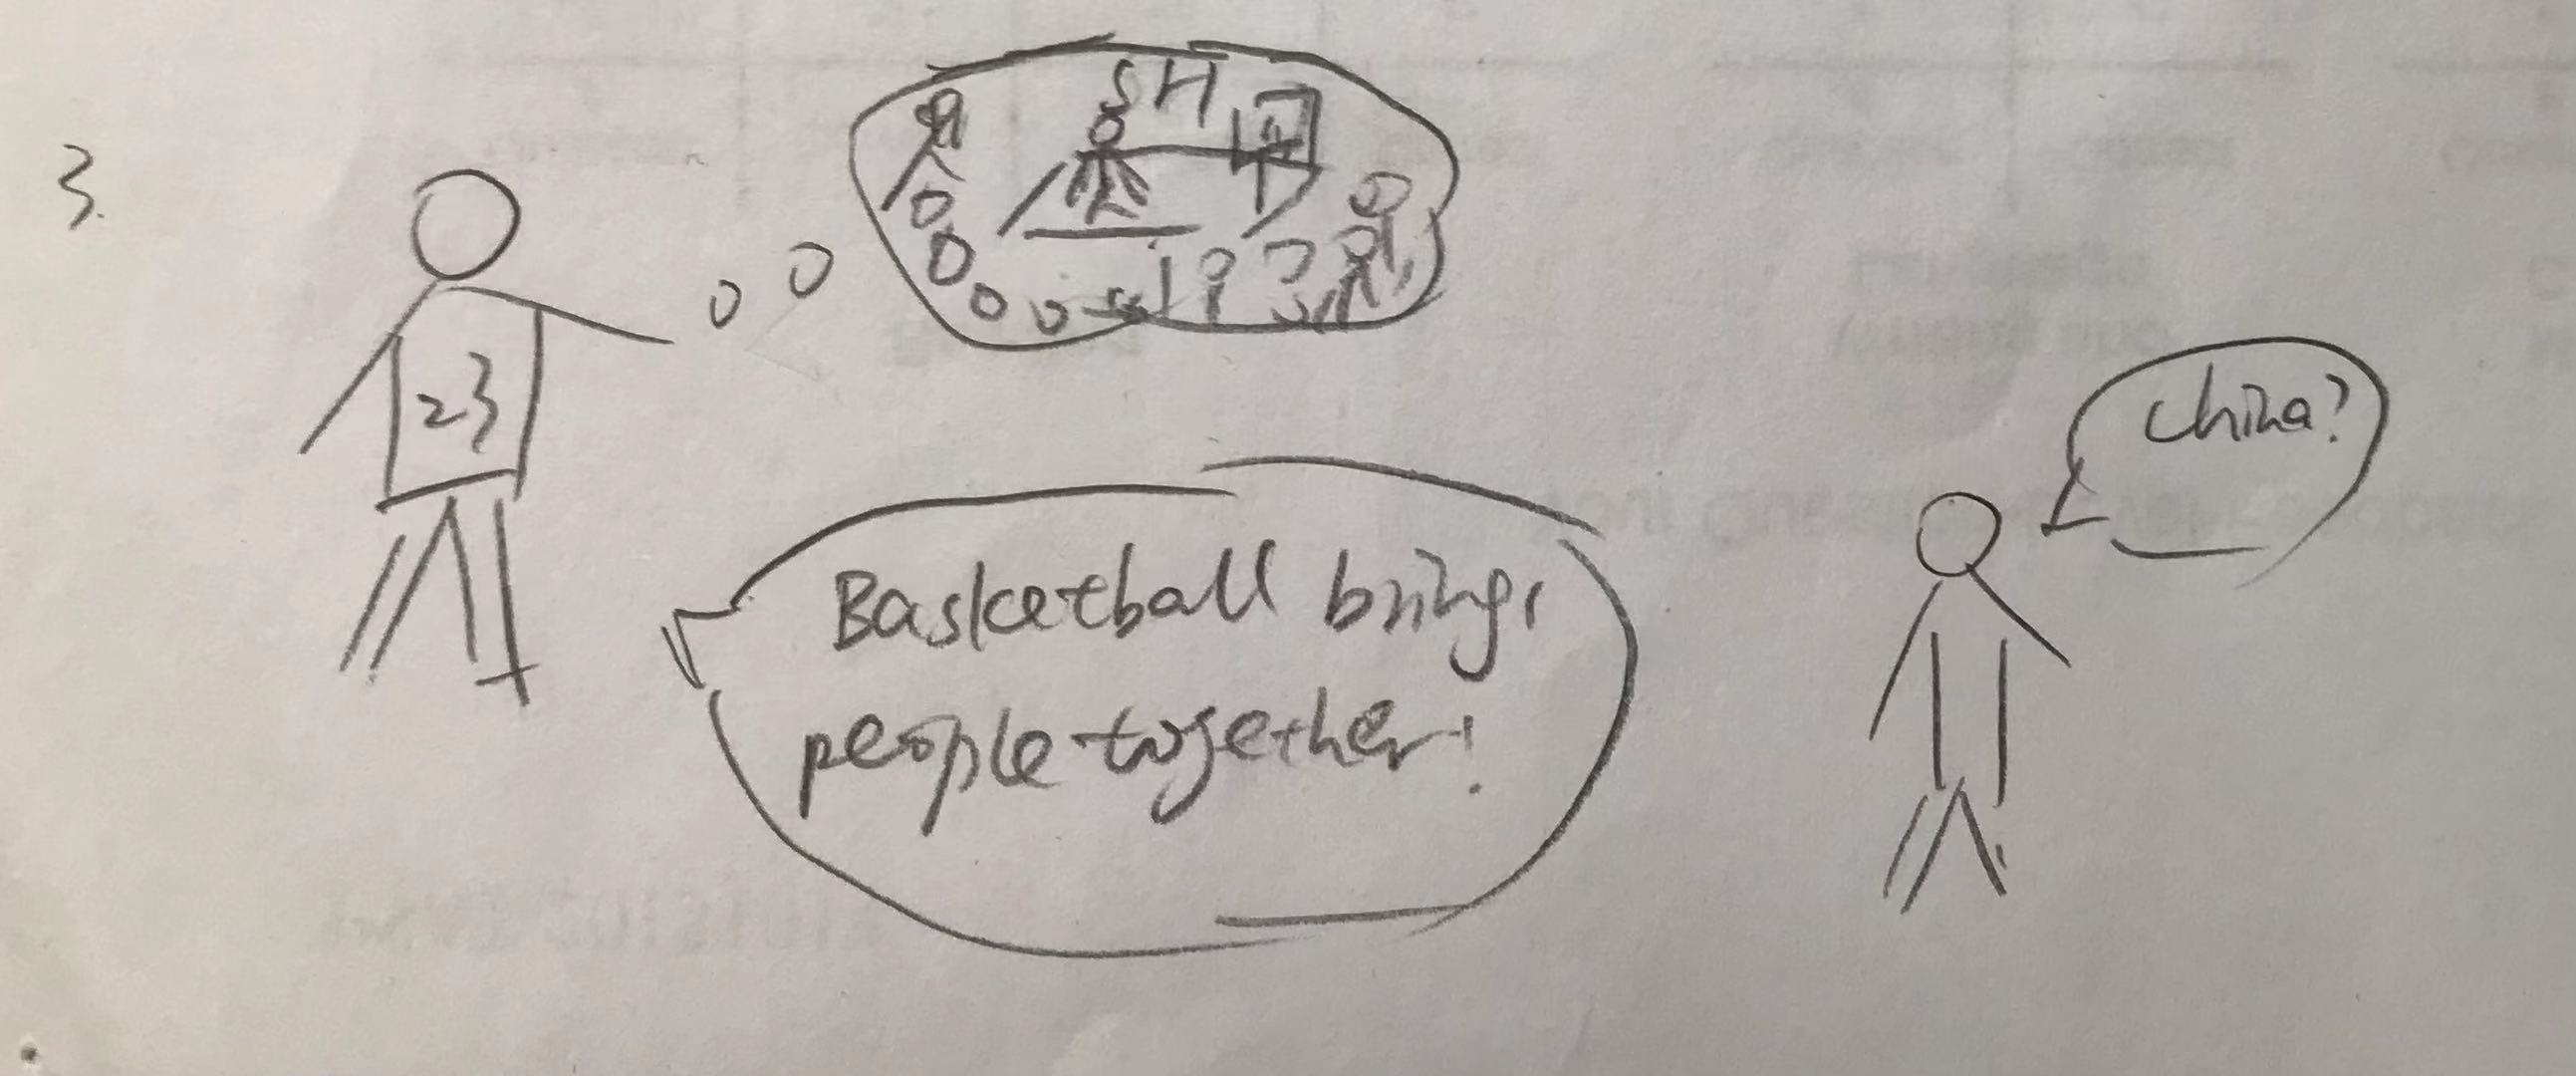 3.
SH
23
China?
Basketball brings
people together!